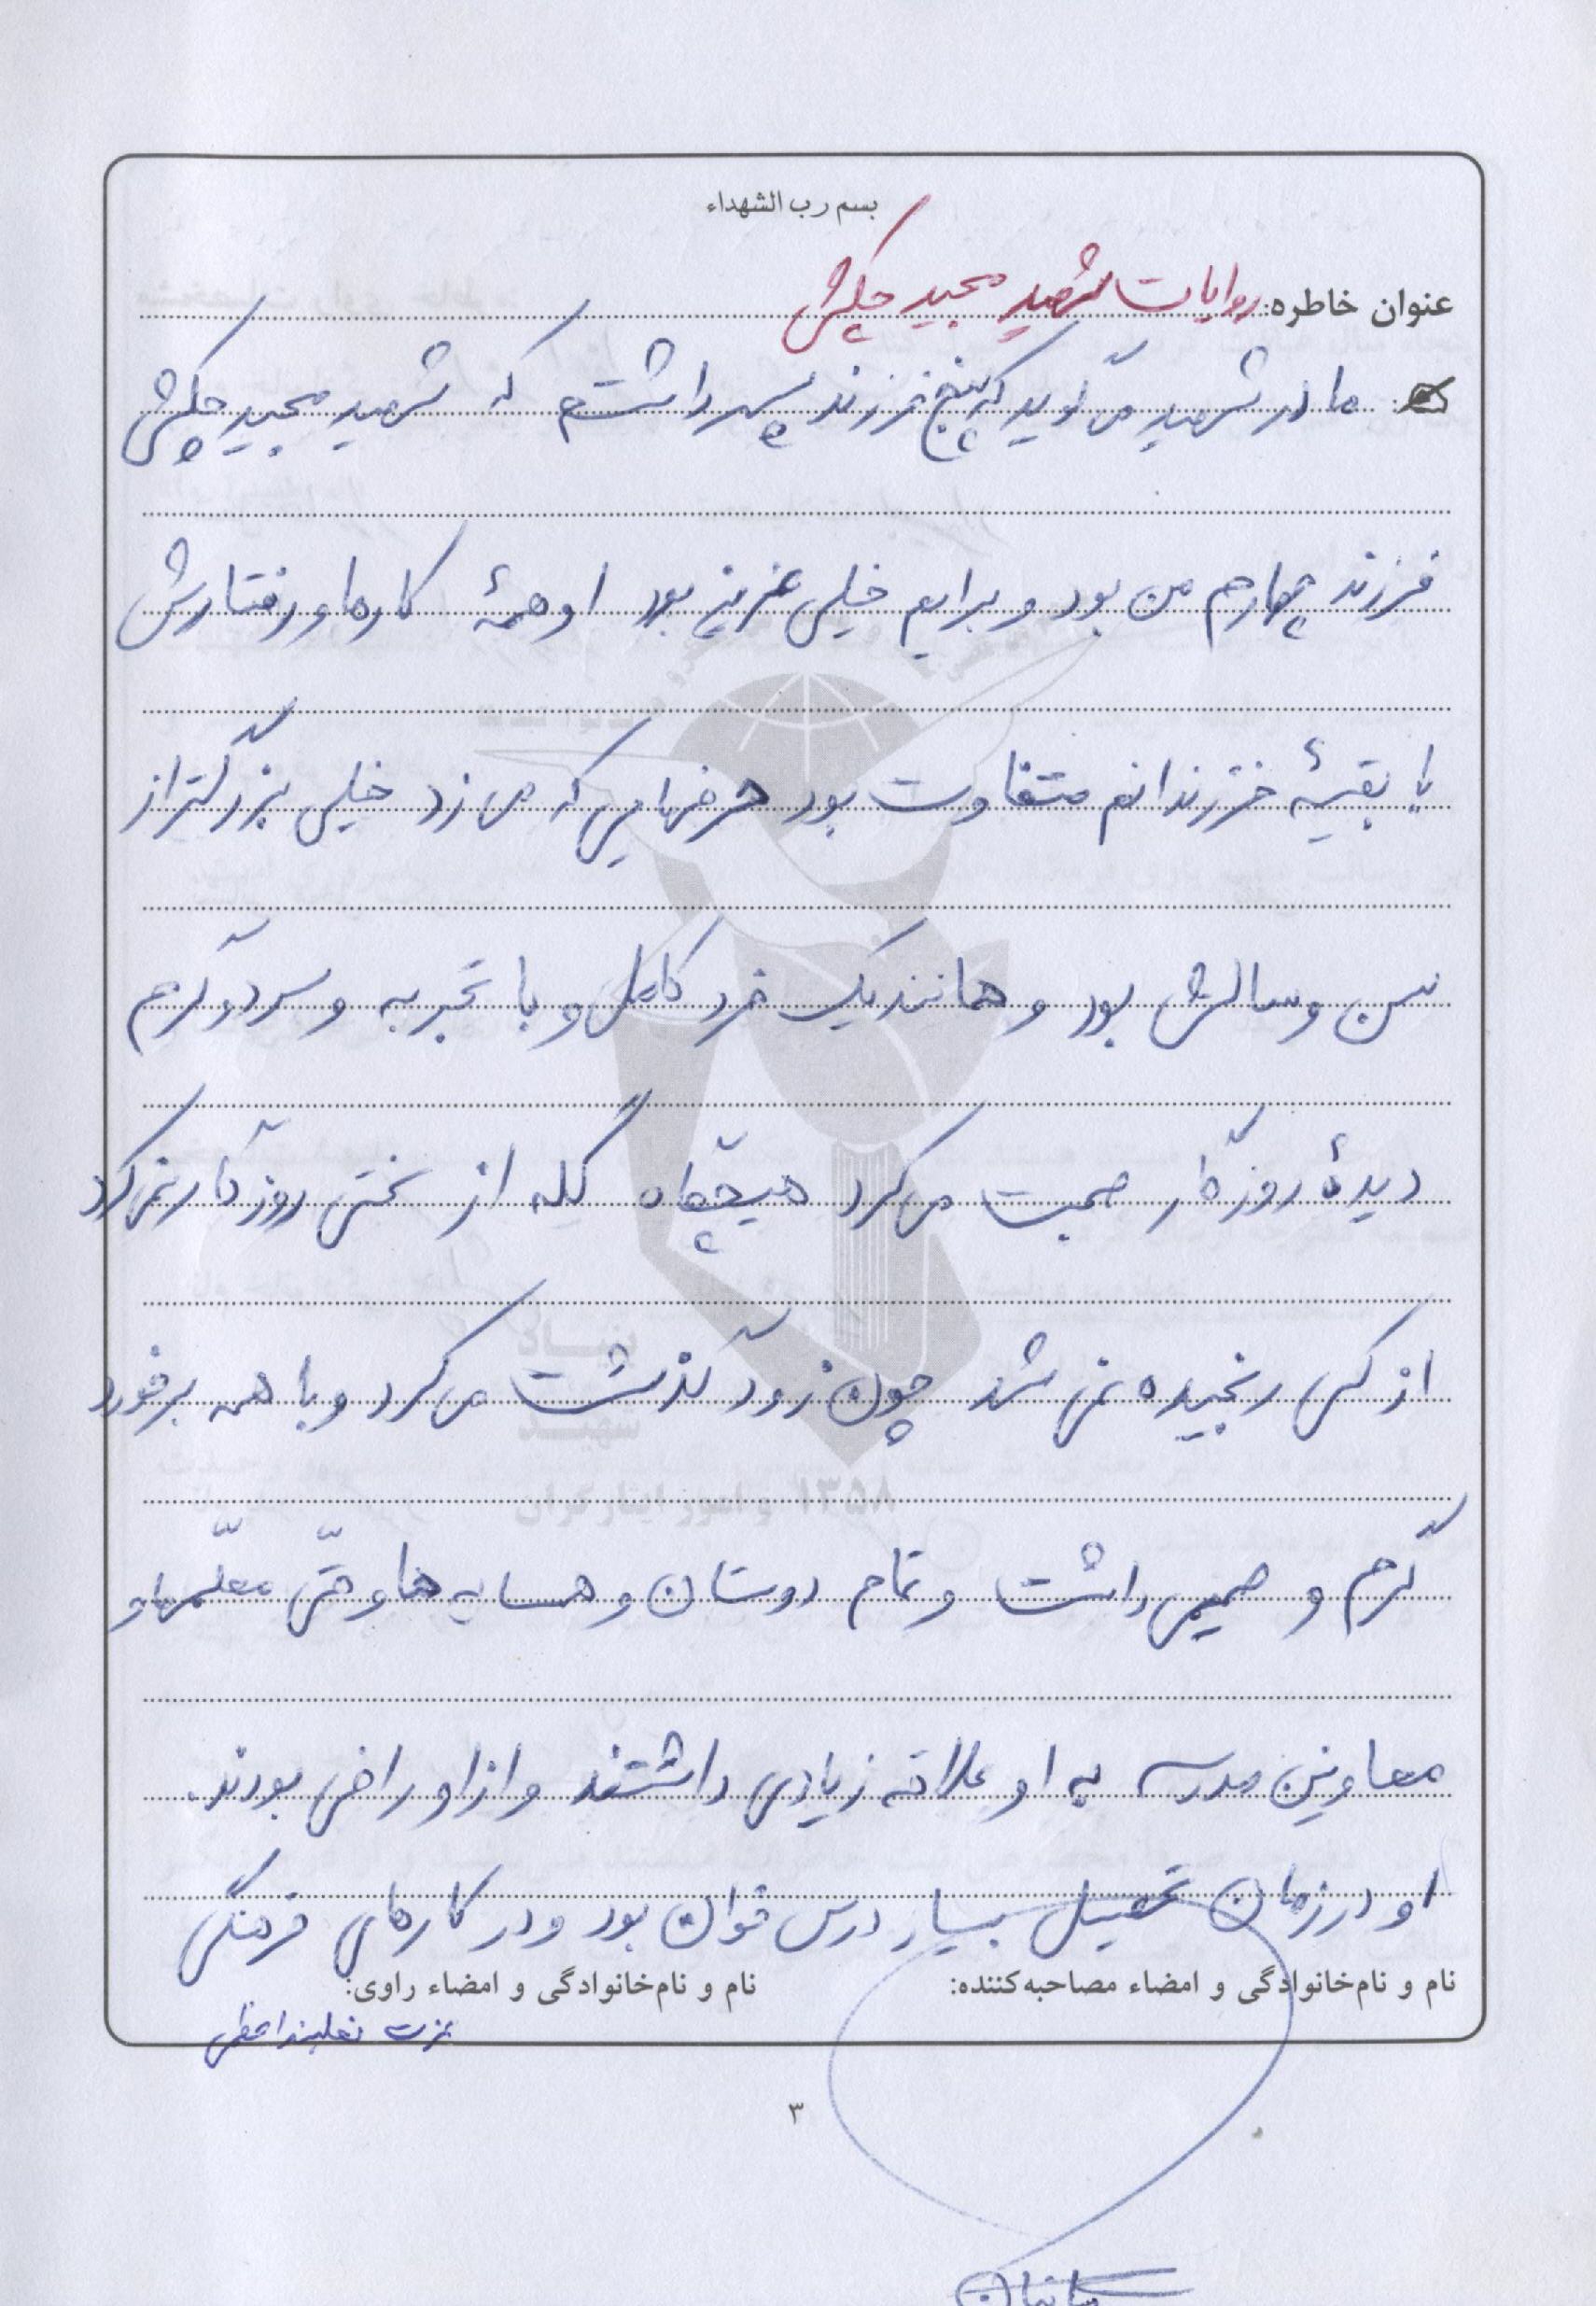 بسم رب الشهداء
عنوان خاطره: روایات شهید مجید چکش
مادر شهید می‌گوید که پنج فرزند پسر داشتم که شهید مجید چکش
فرزند چهارم من بود و برایم خیلی عزیز بود او همهٔ کارها و رفتارش
با بقیهٔ فرزندانم متفاوت بود حرفهایی که می زد خیلی بزرگتر از
سن و سالش بود و همانند یک فرد کامل و با تجربه و سرد و گرم
دیدهٔ روزگار صحبت می کرد هیچگاه گله از سختی روزگار نمی کرد
از کسی رنجیده نمی شد چون زود گذشت می کرد و با همه برخورد
گرم و صمیمی داشت و تمام دوستان و همسایه ها و حتّی معلّمها و
معاونین مدرسه به او علاقه زیادی داشتند و از او راضی بودند.
او در زمان تحصیل بسیار درس خوان بود و در کارهای فرهنگی
نام و نام‌خانوادگی و امضاء مصاحبه‌کننده:
نام و نام‌خانوادگی و امضاء راوی:
عزت
۳
۱۳۵۸
و امور ایثارگران